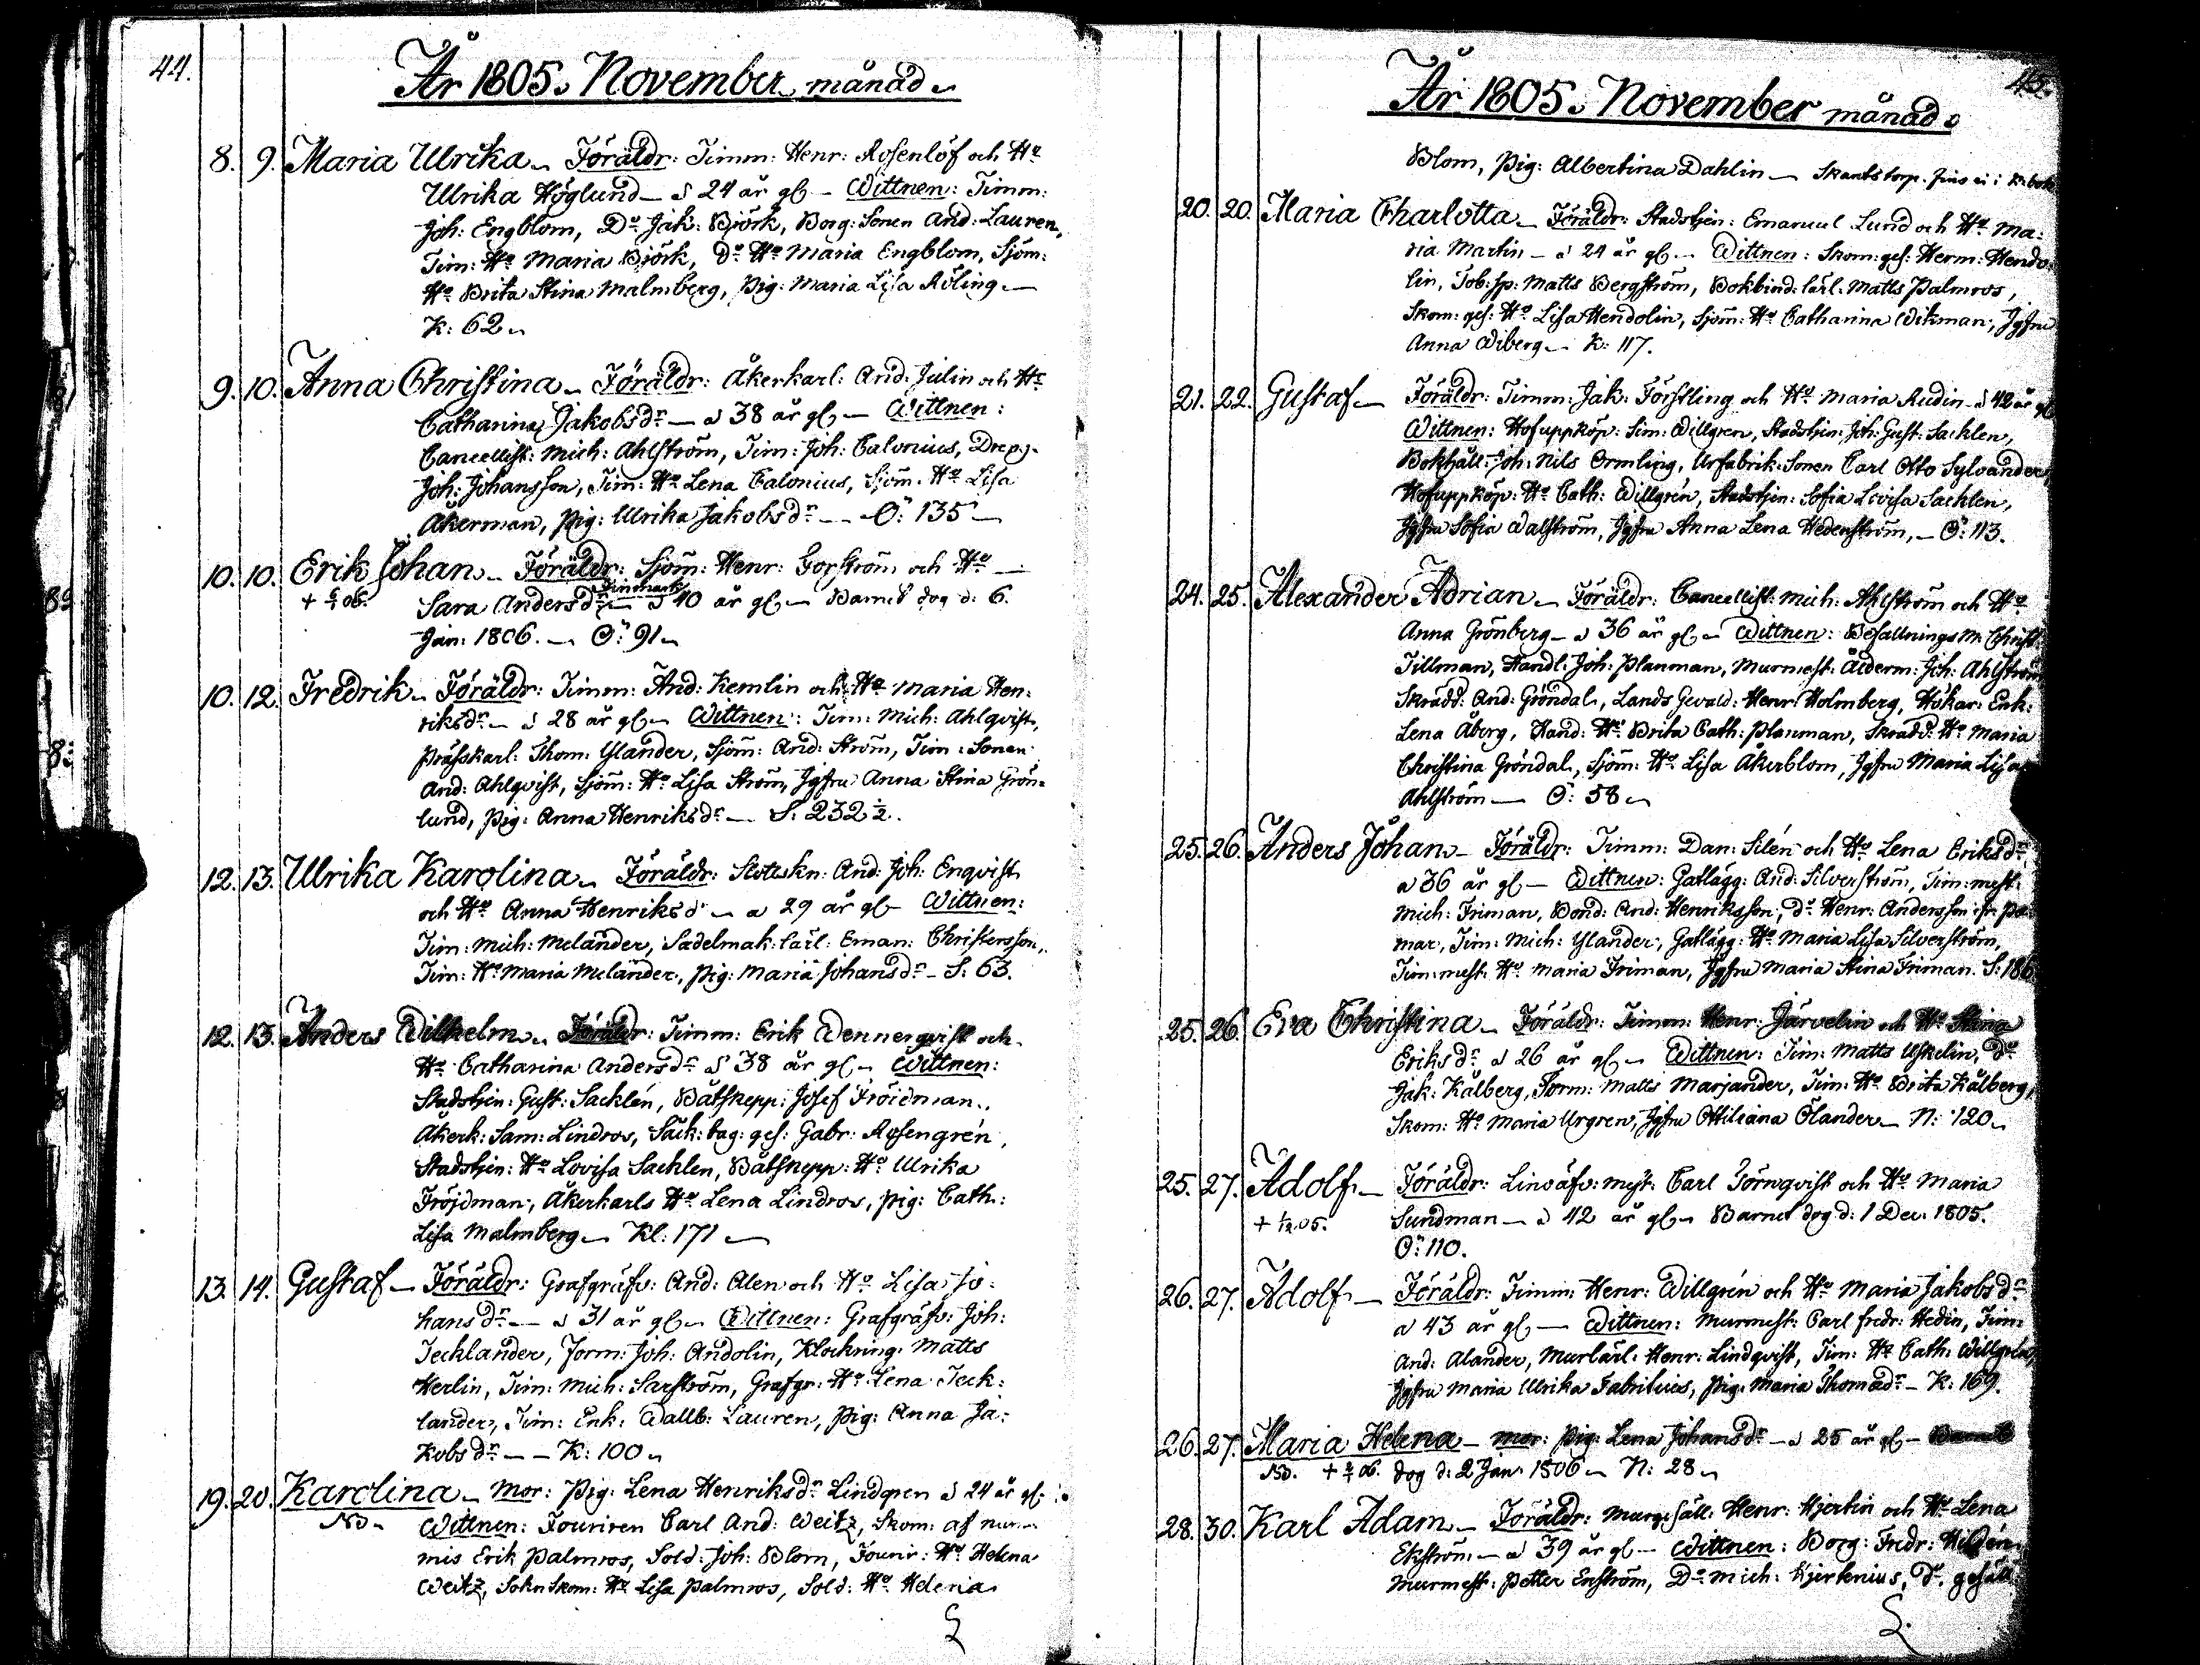 44.
År 1805. November månad.
8. 9. Maria Ulrika. Föräldr: Timm: Henr: Rosenlöf och Hu
Ulrika Höglund - å 24 år gl. - Wittnen: Timm:
Joh: Engblom, Do Jak: Björk, Borg: Sonen And: Lauren,
Tim: Hu Maria Björk, Do Hu Maria Engblom, Sjöm:
Hu Brita Stina Malmberg, Pig: Maria Lisa Röling. -
K: 62.
9. 10. Anna Christina. Föräldr: Åkerkarl: And: Julin och Hu
Catharina Jakobsdr - å 38 år gl. - Wittnen:
Cancellist: Mich: Ahlström, Tim: Joh: Calonius, Drag:
Joh: Johansson, Tim: Hu Lena Calonius, Sjöm: Hu Lisa
Åkerman, Pig: Ulrika Jakobsdr - - Ö: 135 -
10. 10. Erik Johan. Föräldr: Sjöm: Henr: Gorström och Hu -
+ 6/1 06. Sara Andersdr Finnmark - å 40 år gl. - Barnet dog d: 6.
Jan: 1806. - Ö: 91.
10. 12. Fredrik. Föräldr: Timm: And: Kemlin och Hu Maria Hen:
riksdr - å 28 år gl. - Wittnen: Tim: Mich: Ahlqvist,
Prässkarl: Thom: Ylander, Sjöm: And: Ström, Tim: Sonen
And: Ahlqvist, Sjöm: Hu Lisa Ström, Jgfru Anna Stina Grön-
lund, Pig: Anna Henriksdr - S: 232 ½.
12. 13. Ulrika Karolina. Föräldr: Slottskn: And: Joh: Enqvist
och Hu Anna Henriksdr - å 29 år gl - Wittnen:
Tim: Mich: Melander, Sadelmak: lärl: Eman: Christersson,
Tim: Hu Maria Melander, Pig: Maria Johansdr - S: 63.
12. 13. Anders Wilhelm. Föräldr: Timm: Erik Wennerqvist och
Hu Catharina Andersdr å 38 år gl. - Wittnen:
Stadstjen: Gust: Sacklén, Båtskepp: Josef Fröidman,
Åkerk: Sam: Lindros, Säck: bag: ges: Gabr: Rosengrén,
Stadstjen: Hu Lovisa Sacklen, Båtskepp: Hu Ulrika
Fröjdman, Åkerkarls Hu Lena Lindros, Pig: Cath:
Lisa Malmberg - Kl: 171 -
13. 14. Gustaf - Föräldr: Grafgräfv: And: Alen och Hu Lisa Jo-
hansdr - å 31 år gl. - Wittnen: Grafgräfv: Joh:
Tecklander, Form: Joh: Andolin, Klockring: Matts
Herlin, Tim: Mich: Sarström, Grafgr: Hu Lena Teck-
lander, Tim: Enk: Wallb: Lauren, Pig: Anna Ja-
kobsdr - - K: 100.
19. 20. Karolina. Mor: Pig: Lena Henriksdr Lindgren å 24 år gl.
NB. Wittnen: Fouriren Carl And: Weitz, Skom: af num-
mis Erik Palmros, Sold: Joh: Blom, Fourir: Hu Helena
Weitz, Skom: Hu Lisa Palmros, Sold: Hu Helena
45.
År 1805. November månad.
Blom, Pig: Albertina Dahlin - Skantstorp. fins ei i K. bok
20. 20. Maria Charlotta. Föräldr: Stadstjen: Emanuel Lund och Hu Ma-
ria Martin - å 24 år gl. - Wittnen: Skom: ges: Herm: Hendo-
lin, Tob: sp: Matts Bergström, Bokbind: lärl: Matts Palmros,
Skom: ges: Hu Lisa Hendolin, Sjöm: Hu Catharina Wikman, Jgfru
Anna Wiberg. K: 117.
21. 22. Gustaf - Föräldr: Timm: Jak: Förstling och Hu Maria Rudin - å 42 år gl
Wittnen: Hofuppköp: Sim: Willgren, Stadstjen: Joh: Gust: Sacklen,
Bokhåll: Joh: Nils Ormling, Urfabrik: Sonen Carl Otto Sylvander,
Hofuppköp: Hu Cath: Willgrén, Stadstjen: Sofia Lovisa Sacklen,
Jgfru Sofia Walström, Jgfru Anna Lena Hedenström, - Ö: 113.
24. 25. Alexander Adrian. Föräldr: Cancellist: Mich: Ahlström och Hu
Anna Grönberg - å 36 år gl. - Wittnen: Befallnings M. Christ:
Tillman, Handl: Joh: Planman, Murmest: Ålderm: Joh: Ahlström
Skrädd: And: Gröndal, Lands Gevald: Henr: Holmberg, Hökar: Enk:
Lena Åberg, Hand: Hu Brita Cath: Planman, Skrädd: Hu Maria
Christina Gröndal, Sjöm: Hu Lisa Åkerblom, Jgfru Maria Lisa
Ahlström - Ö: 58.
25. 26. Anders Johan - Föräldr: Timm: Dan: Silén och Hu Lena Eriksdr
å 36 år gl - Wittnen: Gatlägg: And: Silverström, Tim: mest:
Mich: Friman, Bond: And: Henriksson, Do Henr: Andersson fr: Pa-
mar, Tim: Mich: Ylander, Gatlägg: Hu Maria Lisa Silverström,
Tim: mest: Hu Maria Friman, Jgfru Maria Stina Friman. S: 186
25. 26. Eva Christina - Föräldr: Timm: Henr: Järvelin och Hu Stina
Eriksdr å 26 år gl. - Wittnen: Tim: Matts Uskelin, Do
Jak: Kålberg, Form: Matts Marjander, Tim: Hu Brita Kålberg,
Skom: Hu Maria Urgren, Jgfru Ottiliana Ölander - N: 120.
25. 27. Adolf. - Föräldr: Linväfv: mest: Carl Törnqvist och Hu Maria
+ 1/12 05. Sundman - å 42 år gl. Barnet dog d: 1 Dec: 1805.
Ö: 110.
26. 27. Adolf. - Föräldr: Timm: Henr: Willgrén och Hu Maria Jakobsdr
å 43 år gl. - Wittnen: Murmest: Carl Fredr: Hedin, Tim:
And: Alander, Murlärl: Henr: Lindqvist, Tim: Hu Cath: Willgrén,
Jgfru Maria Ulrika Fabritius, Pig: Maria Thomadr - K: 169.
26. 27. Maria Helena - Mor: Pig: Lena Johansdr - å 25 år gl - Barnet
NB. + 2/1 06. dog d: 2 Jan: 1806. N: 28.
28. 30. Karl Adam - Föräldr: Murgesäll: Henr: Hjertin och Hu Lena
Ekström - å 39 år gl. - Wittnen: Borg: Fredr: Hildén,
Murmest: Petter Enström, Do Mich: Hjertenius, Do gesäll: